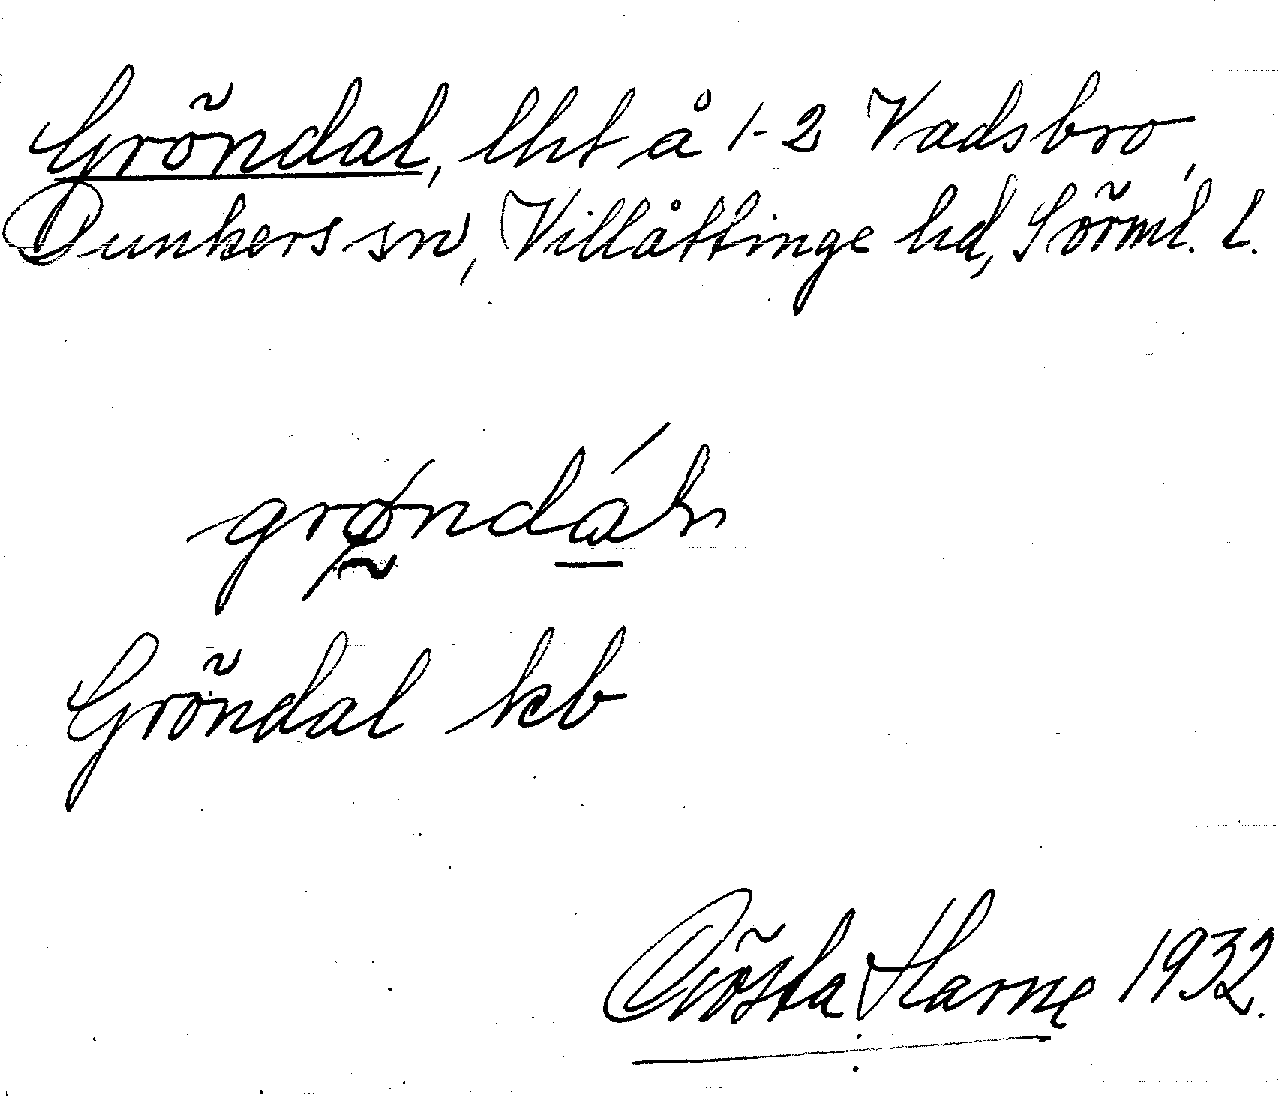 Gröndal, lht å 1-2 Vadsbro,
Dunkers sn, Villåttinge hd, Sörml. l.
grøndál
Gröndal kb
Gösta Harne 1932.